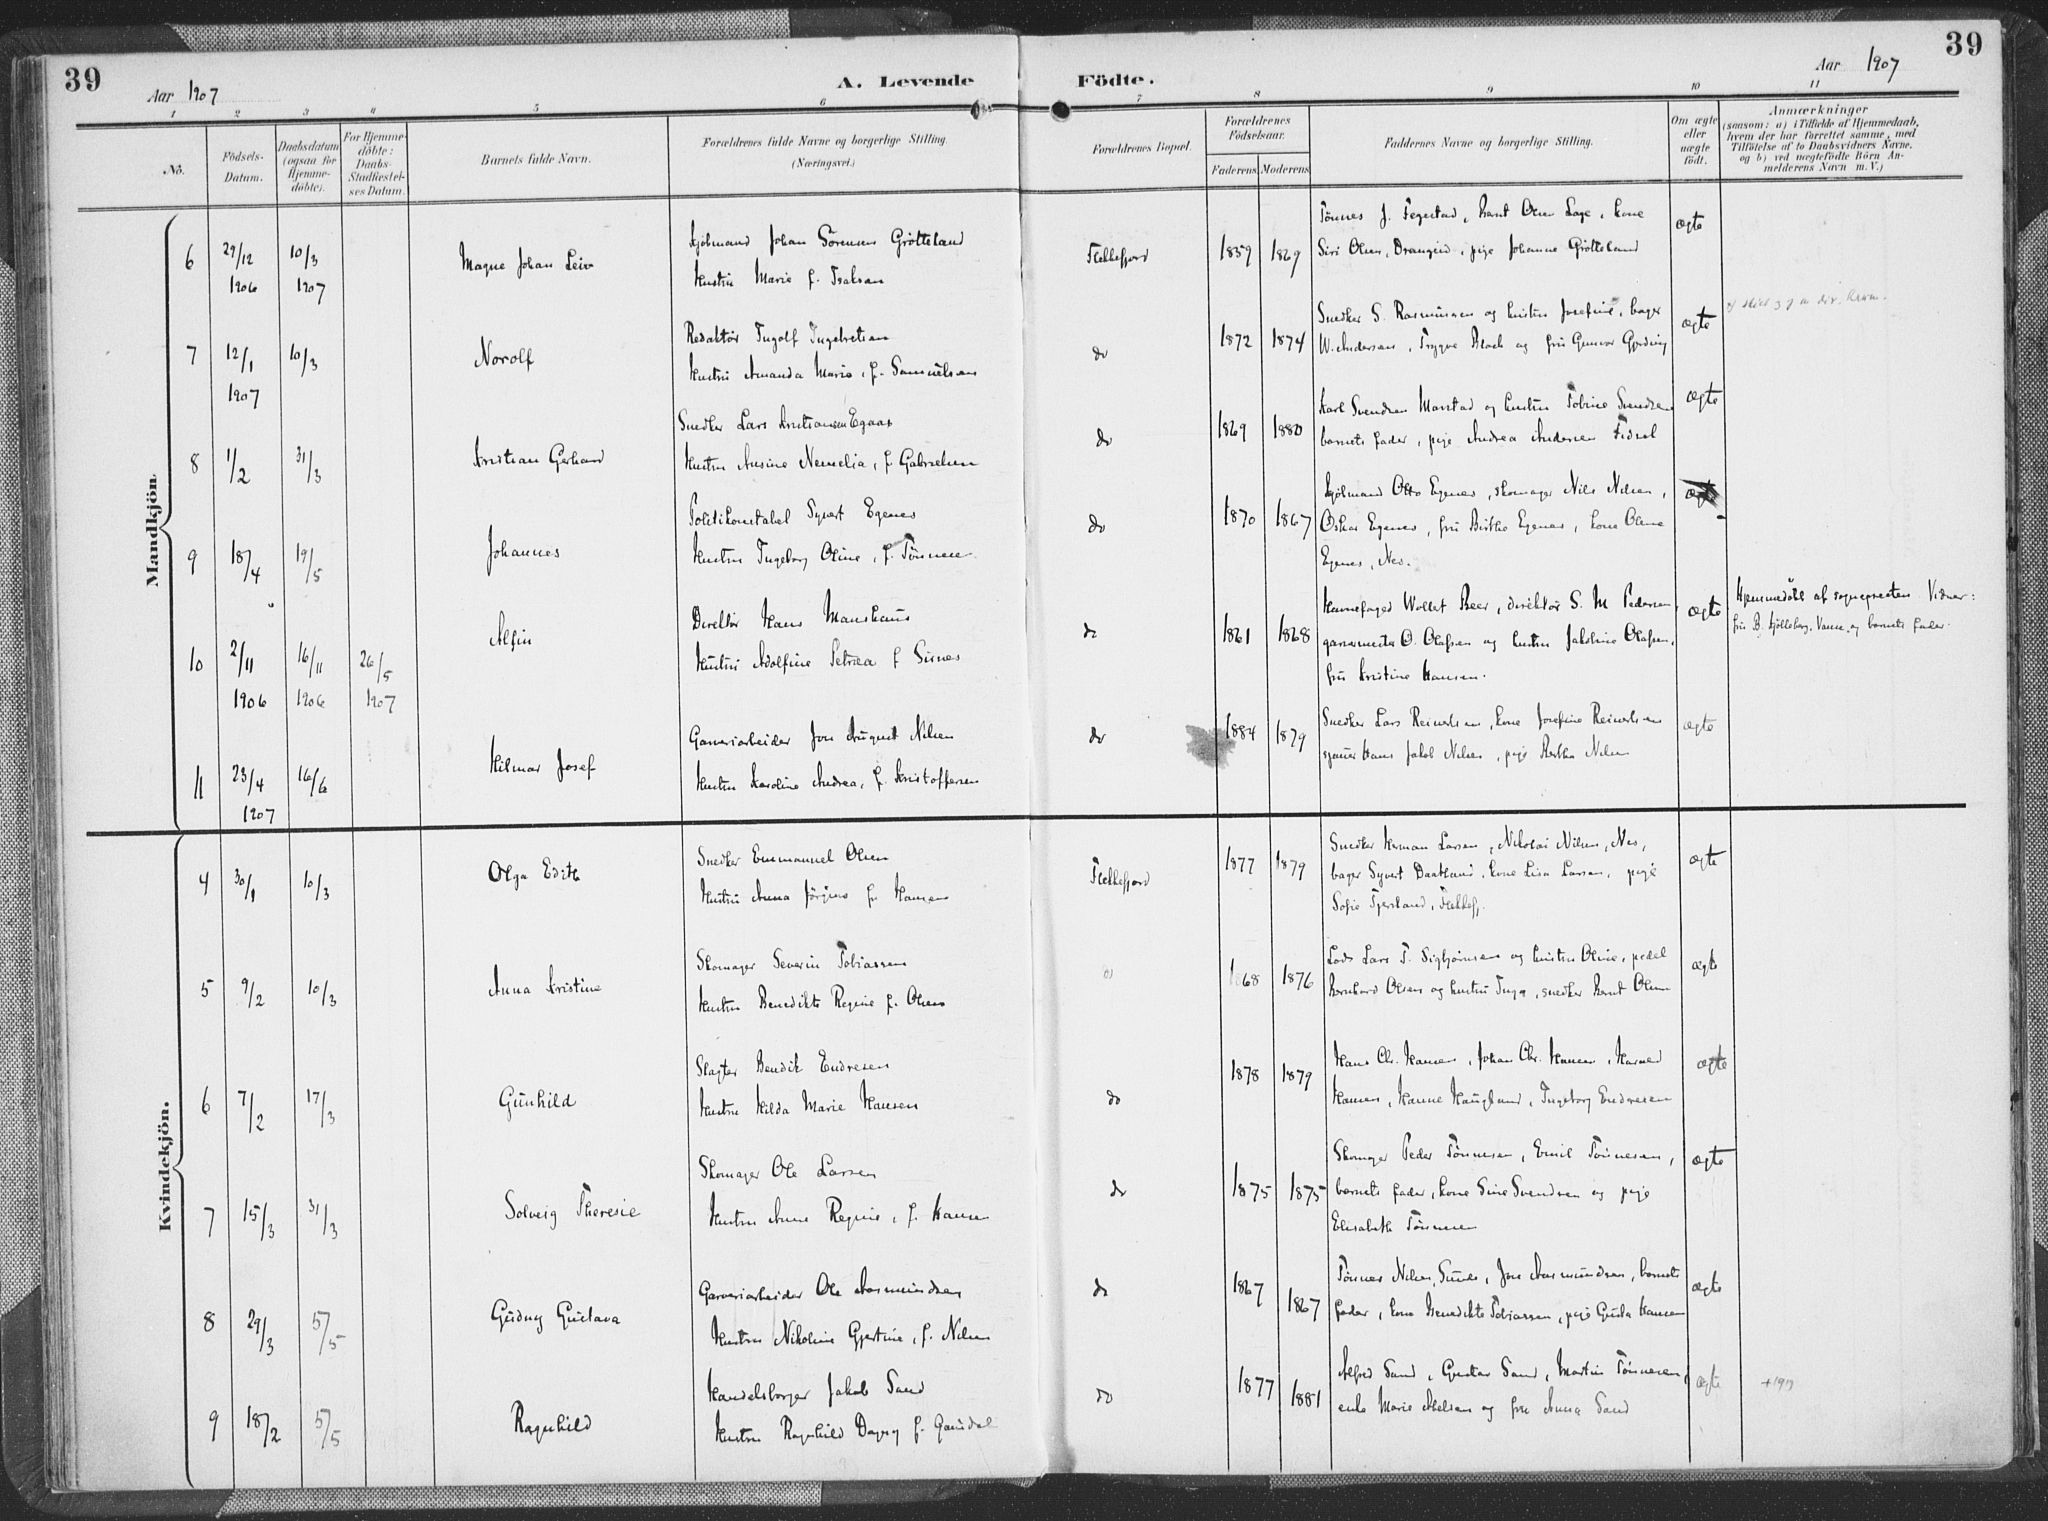 39
39
Aar 1907
A. Levende
Födte.
Aar 1907
1 2 3 4 5 6 7 8 9 10 11
No.
Födsels-Datum.
Daabsdatum (ogsaa for Hjemme-döbte).
For Hjemme-döbte: Daabs-Stadfæstel-ses Datum.
Barnets fulde Navn.
Forældrenes fulde Navne og borgerlige Stilling.
(Næringsvei.)
Forældrenes Bopæl.
Forældrenes Födselsaar.
Faderens Moderens
Faddernes Navne og borgerlige Stilling.
Om ægte eller uægte födt.
Anmærkninger
(saasom: a) i Tilfælde af Hjemmedaab,
hvem der har forrettet samme, med
Tilföielse af to Daabsvidners Navne,
og b) ved uægtefödte Börn An-
melderens Navn m. V.)
Mandkjön.
6 29/12 1906 10/3 1907 Magne Johan Leiv
Kjöbmand Johan Sörensen Grötteland
Hustru Marie f. Isaksen
Flekkefjord 1859 1869
Tönnes J. Fegestad, Bernt Olsen Lage, kone
Siri Olsen, Drangeid, pige Johanne Grötteland
ægte
7 12/1 1907 10/3 Norolf
Redaktör Ingolf Ingebretsen
Hustru Amanda Marie, f. Samuelsen
do 1872 1874
Snedker S. Rasmussen og hustru Josefine, bager
W. Andersen, Trygve Block og fru Gunvor Gjerding
ægte
8 1/2 31/3 Kristian Gerhard
Snedker Lars Kristiansen Egaas
Hustru Ansine Nemelia, f. Gabrielsen
do 1869 1880
Karl Svendsen Maustad og hustru Tobine Svendsen
barnets fader, pige Andrea Andersen Fidsel
ægte
9 18/4 19/5 Johannes
Politikonstabel Syvert Egenes
Hustru Ingeborg Oline, f. Tönnesen
do 1870 1867
Kjöbmand Otto Egenes, skomager Nils Nilsen,
Oskar Egenes, fru Birthe Egenes, kone Oline
Egenes, Nes.
ægte
10 2/11 1906 16/11 1906 26/5 1907 Alfin
Direktör Hans Manshaus
Hustru Adolfine Petrea f. Sirnes
do 1861 1868
Havnefoged Wollert Beer, direktör S. M. Pedersen,
garvermester O. Olafsen og hustru Jakobine Olafsen,
fru Kristine Hansen.
ægte
Hjemmedöbt af sognepresten Vidner:
fru B. Kjölleberg, Vanse, og barnets fader.
11 23/4 1907 16/6 Hilmar Josef
Garveriarbeider Jon August Nilsen
Hustru Karoline Andrea, f. Kristoffersen
do 1884 1879
Snedker Lars Reinertsen, kone Josefine Reinertsen
Hans Jakob Nilsen, pige Bertha Nilsen
ægte
Kvindekjön.
4 30/1 10/3 Olga Edith
Snedker Emmanuel Olsen
Hustru Anna Jörgine f. Hansen
Flekkefjord 1877 1879
Snedker Herman Larsen, Nikolai Nilsen, Nes,
bager Syvert Daatland, kone Lisa Larsen, pige
Sofie Tjersland, Flekkefj.
ægte
5 9/2 10/3 Anna Kristine
Skomager Severin Tobiassen
Hustru Benedikte Regine f. Olsen
do 1868 1876
Lods Lars T. Sigbjörnsen og hustru Oline, pedel
Bernhard Olsen og hustru Inga, snedker Bernt Olsen
ægte
6 7/2 17/3 Gunhild
Slagter Bendik Endresen
Hustru Hilda Marie Hansen
do 1878 1879
Hans Chr. Hansen, Johan Chr. Hansen, Harned
Hansen, Hanne Haugland, Ingeborg Endresen
ægte
7 15/3 31/3 Solveig Theresie
Skomager Ole Larsen
Hustru Anne Regine, f. Hansen
do 1875 1875
Skomager Peder Tönnesen, Emil Tönnesen,
barnets fader, kone Sine Svendsen og pige
Elisabeth Tönnesen
ægte
8 29/3 5/5 Gudny Gustava
Garveriarbeider Ole Aasmundsen
Hustru Nikoline Gjertine, f. Nilsen
do 1867 1867
Tönnes Nilsen, Sunde, Jon Aasmundsen, barnets
fader, kone Benedikte Tobiassen, pige Gusta Hansen
ægte
9 18/2 5/5 Ragnhild
Handelsborger Jakob Sand
Hustru Ragnhild Dagny f. Gausdal
do 1877 1881
Alfred Sand, Gustav Sand, Martin Tönnesen,
enke Marie Abelsen og fru Anna Sand
ægte
+ 1919